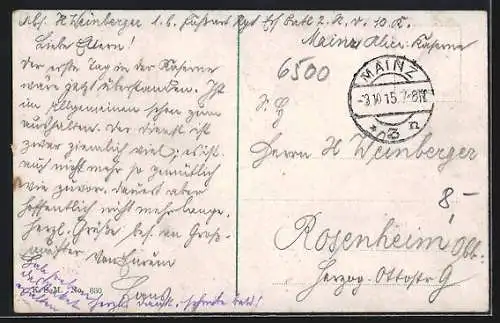 Abs. H Weinberger 1. b. Fußart Rgt Ers Batl 2. K. v. 10. K.
Mainz Alice Kaserne
Liebe Eltern!
Der erste Tag in der Kaserne
wäre jetzt überstanden. Ist
im Allgemeinen schon zum
aushalten. Der Dienst ist
zwar ziemlich viel; es ist
auch nicht mehr so gemütlich
wie zuvor. dauert aber
hoffentlich nicht mehr lange.
Herzl. Grüße bes. an Groß-
mutter von Eurem
Hans
erhalten herzl. Dank. schreibe bald!
K. S. M. No. 630
6500
MAINZ
-3.10.15. 7-8N
* 3 n
Herrn H Weinberger
8,-
Rosenheim Obb.
Herzog-Ottostr 9